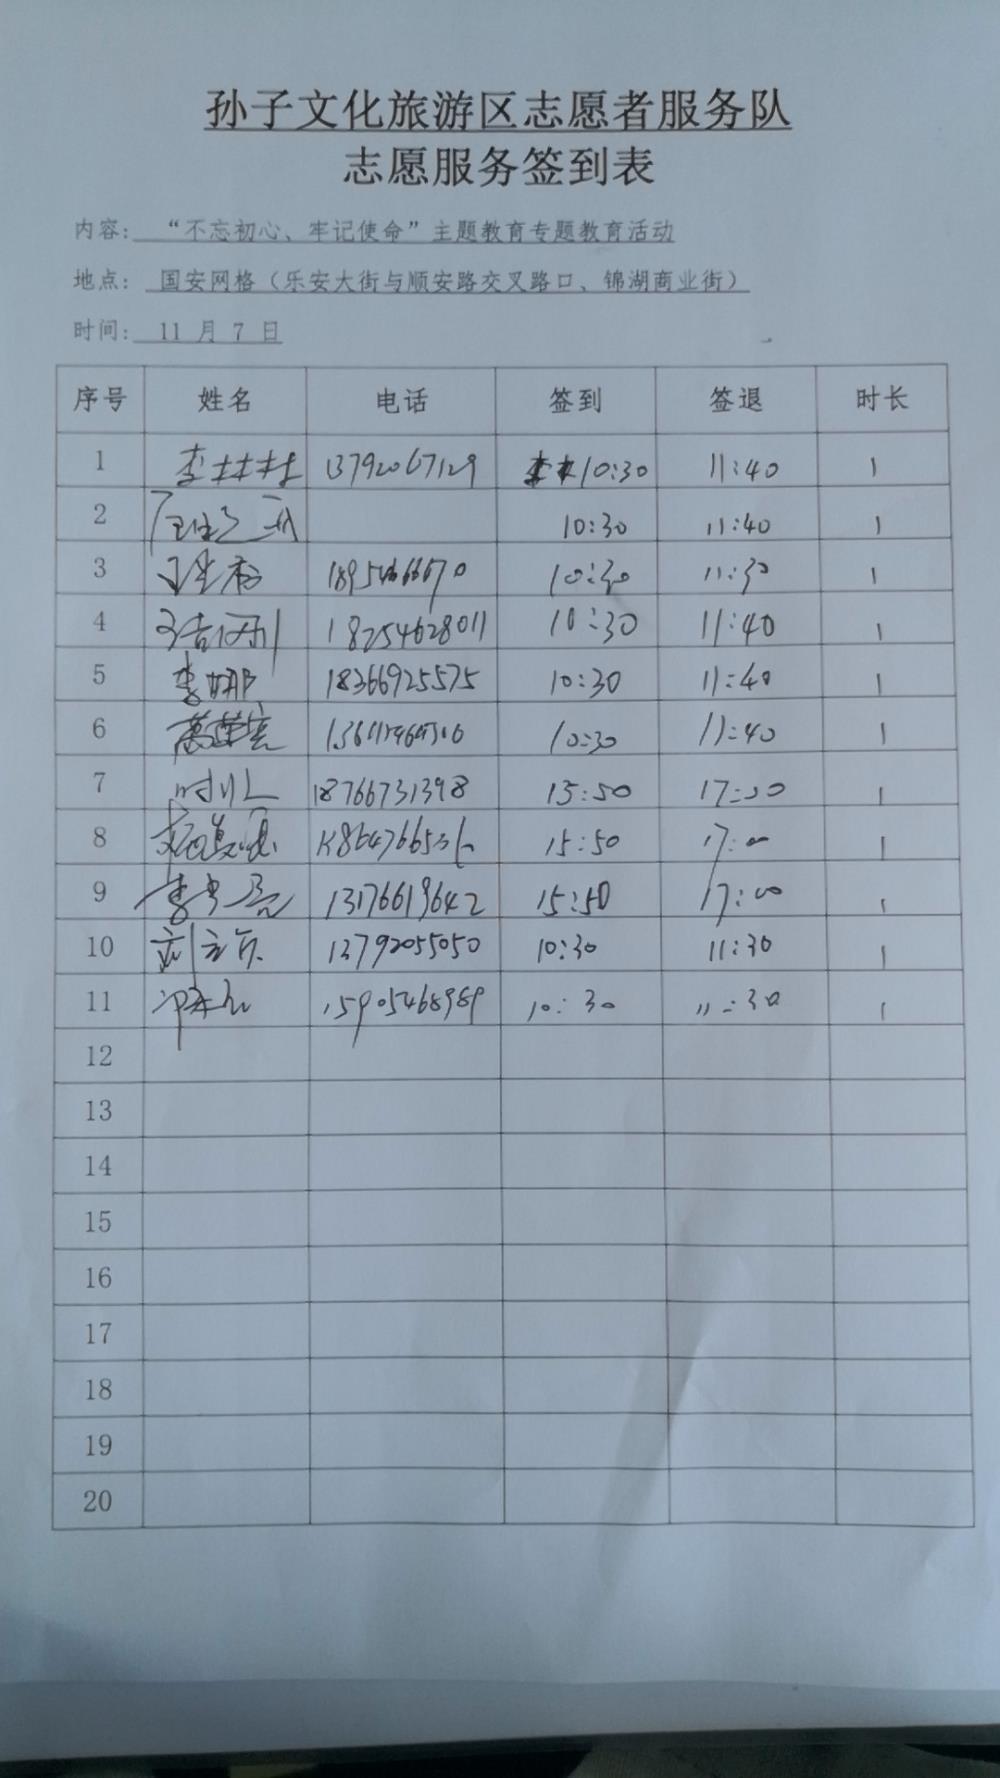 孙子文化旅游区志愿者服务队
志愿服务签到表
内容: “不忘初心、牢记使命”主题教育专题教育活动
地点: 国安网格(乐安大街与顺安路交叉路口、锦湖商业街)
时间: 11 月 7 日
序号 姓名 电话 签到 签退 时长
1 李林林 13792067129 10:30 11:40 1
2 10:30 11:40 1
3 10:30 11:30 1
4 18254628011 10:30 11:40 1
5 李娜 18366925575 10:30 11:40 1
6 10:30 11:40 1
7 18766731398 15:50 17:00 1
8 15:50 17:00 1
9 13176619642 15:50 17:00 1
10 13792055050 10:30 11:30 1
11 15905468989 10:30 11:30 1
12
13
14
15
16
17
18
19
20